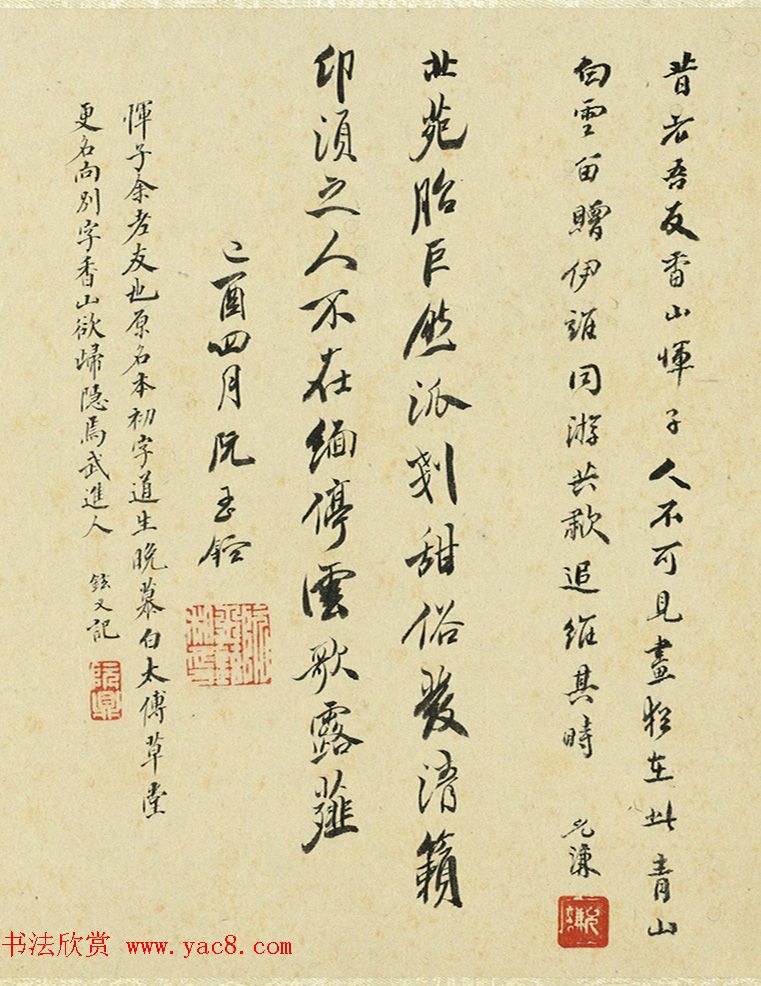 昔者吾友香山惲子人不可見畫猶在此青山
白雲留贈伊誰同游共歎追維其時
允謙
北苑胎巨然派剗甜俗發清籟
卬須之人不在緬停雲歌露薤
己酉四月阮玉鉉
惲子余老友也原名本初字道生晚慕白太傅草堂
更名向別字香山欲歸隱焉武進人
鉉又記
书法欣赏 www.yac8.com